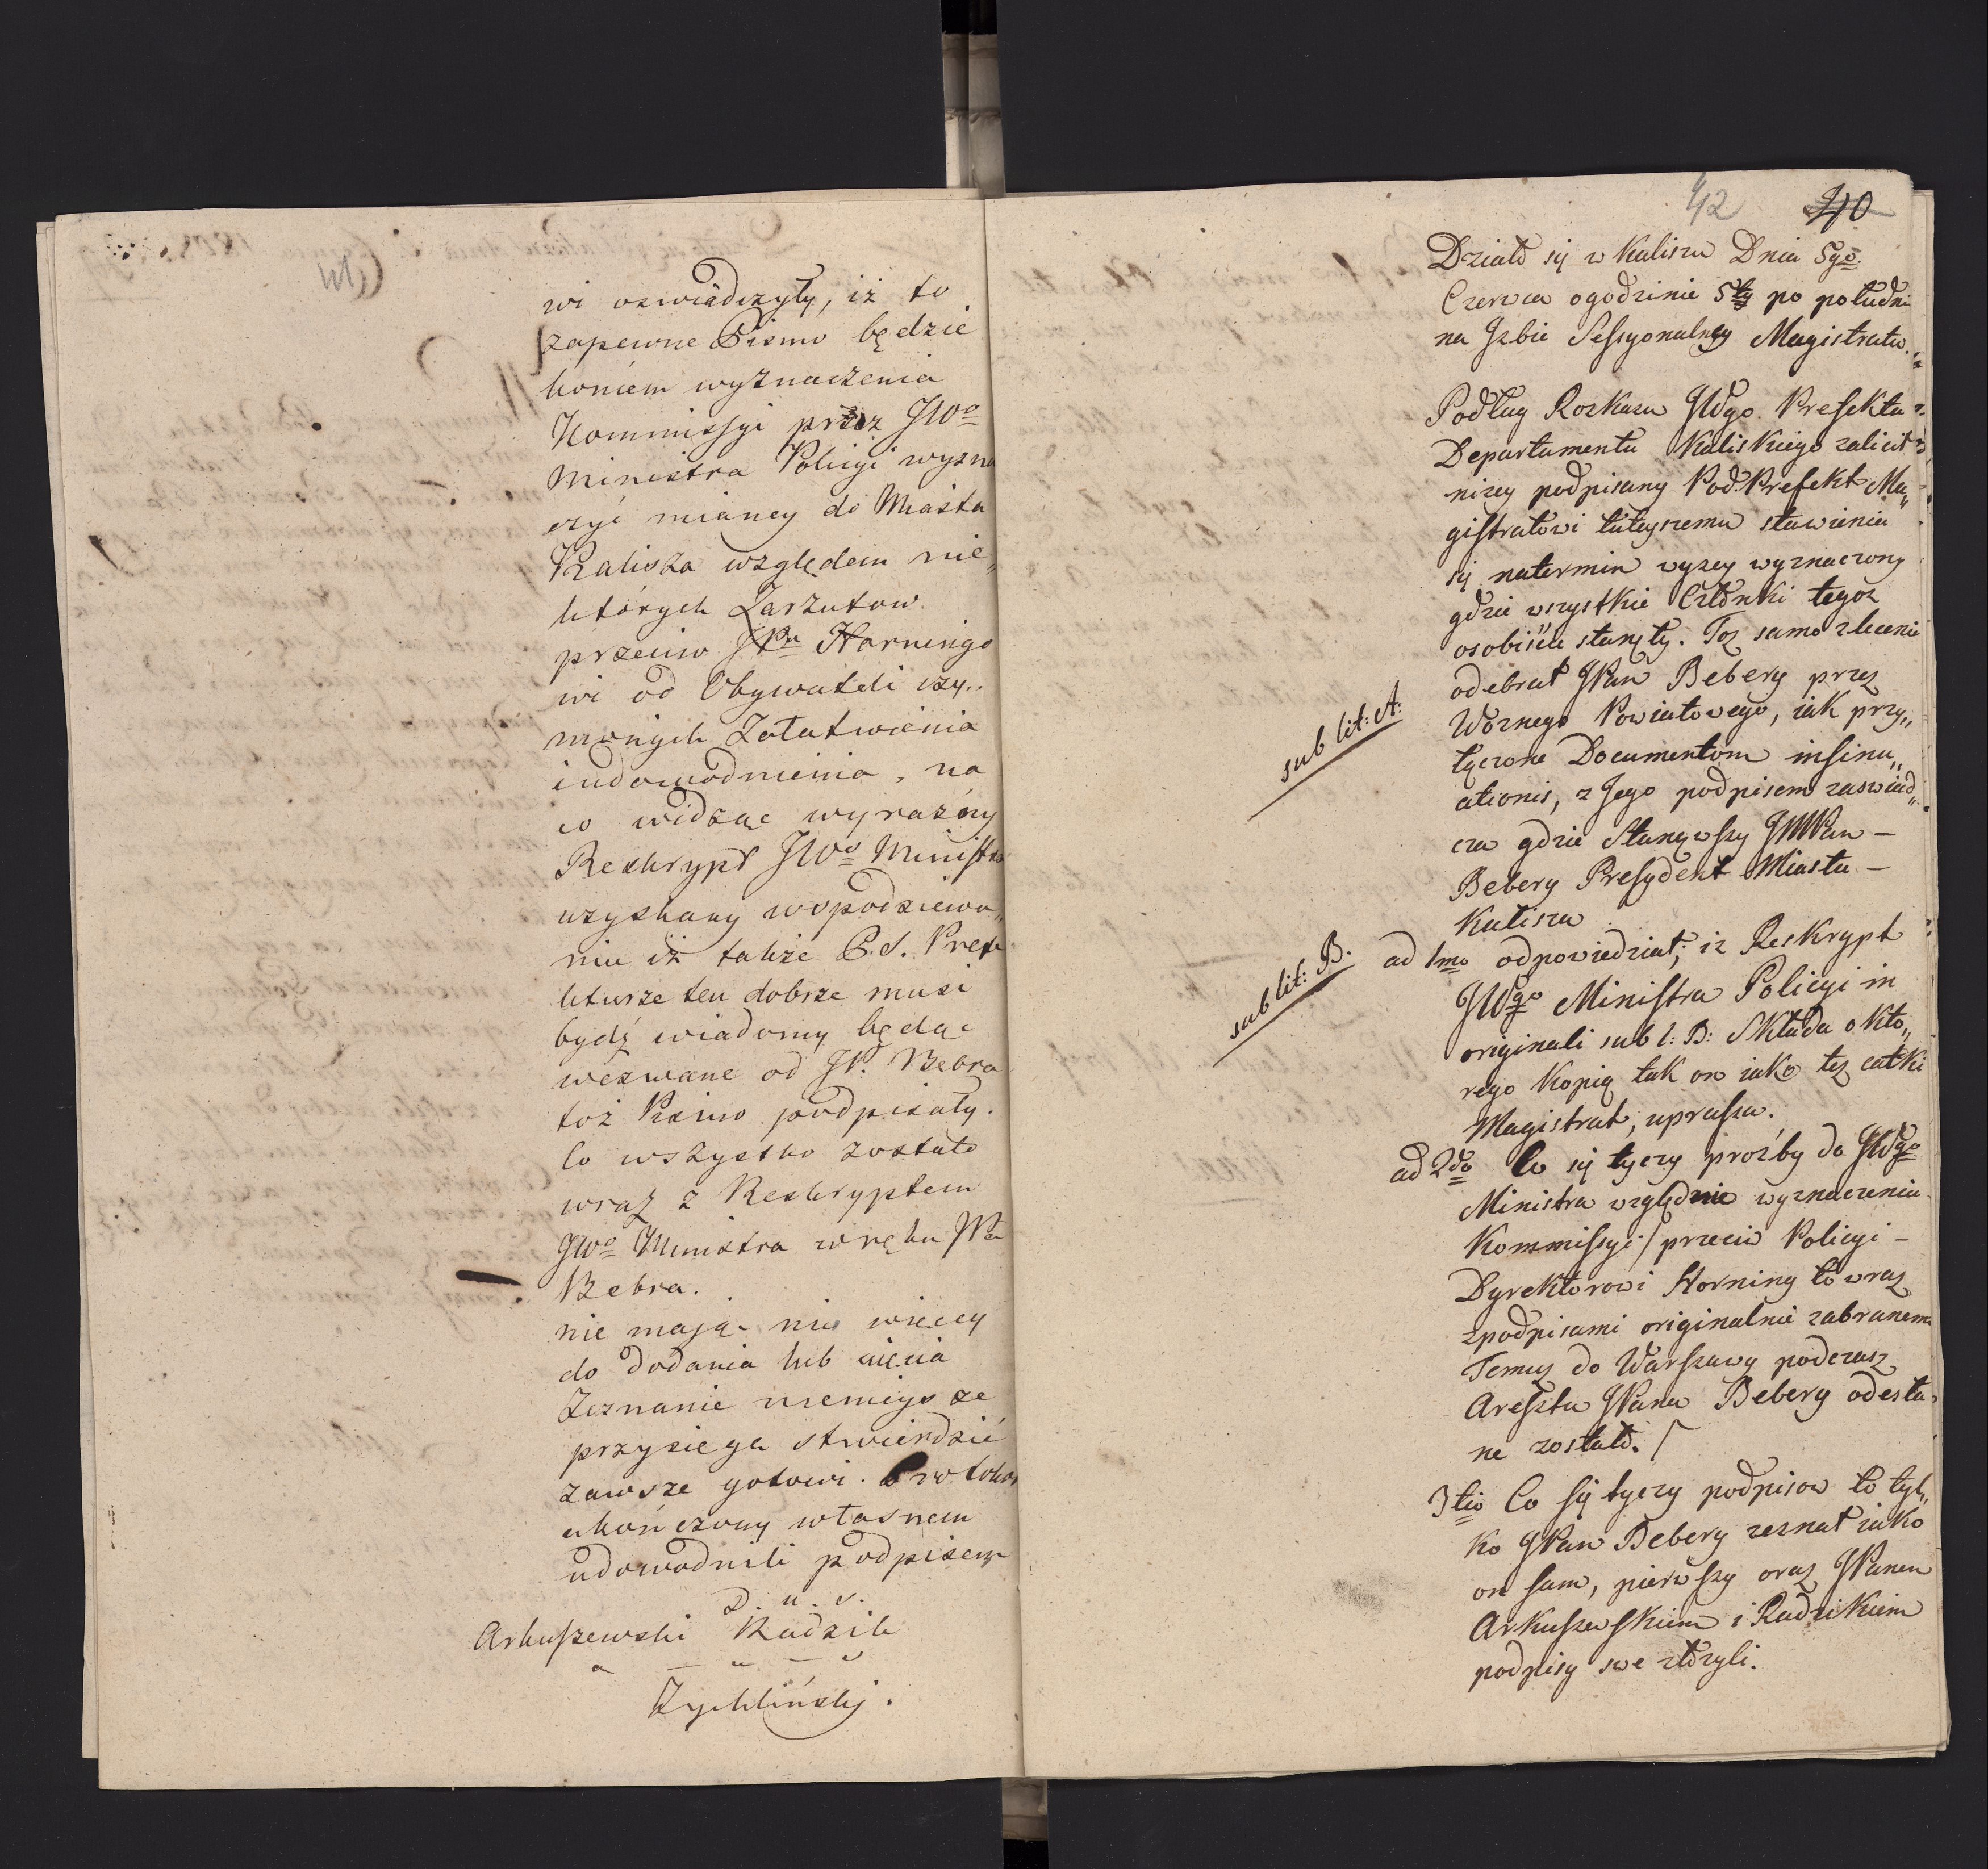 wi oswiadczyły, iż to
zapewne Pismo będzie
koniem wyznaczenia
Kommissyi przez JWo
Ministra Policyi wyzna
czyć mianey do Miasta
Kalisza względem nie„
których Zarzutow
przeciw JPu Horningo
wi od Obywateli czy„
nionych Załatwienia
i udowodnienia, na
co widząc wyrazny
Reskrypt JWo Ministra
uzyskany w spodziewa„
niu iż także P. d. Prefe
kturze ten dobrze musi
bydź wiadomy będąc
wezwane od JP. Bebra
toż Pismo podpisały.
Co wszystko zostało
wraz z Reskryptem
JWo Ministra w ręku JPa
Bebra.
nie mając nic więcey
do dodania lub ujęcia
Zeznanie ninieysze
przysięgą stwierdzić
zawsze gotowi. Protokoł
ukończony własnem
udowodnili podpisem
D. u. s.
Arkuszewski Radzik
a — u — s
Zychlińskj.
42 40
Działo się w Kaliszu Dnia 5go
Czerwca o godzinie 5tey po południ
na Izbie Sessyonalney Magistratu.
Podług Rozkazu JWgo Prefekta
Departamentu Kaliskiego zalecił
niżey podpisany Pod Prefekt Ma„
gistratowi tuteyszemu stawienia
się na termin wyżey wyznaczony
gdzie wszystkie Członki tegoż
osobiście stanęły. Toż samo zlecenie
odebrał JPan Bebery przez
Woznego Powiatowego, iak przy„
sub lit: A:
łączone Documentom insinu„
ationis, z Jego podpisem zaswiad„
cza gdzie Stanąwszy JMPan —
Bebery Presydent Miasta —
Kalisza
ad 1mo odpowiedział, iż Reskrypt
sub lit: B.
JWgo Ministra Policyi in
originali sub l: B: Składa o któ„
rego Kopię tak on iako też całki
Magistrat, uprasza.
ad 2do Co się tyczy proźby do JWgo
Ministra względnie wyznaczenia
Kommissyi / przeciw Policyi —
Dyrektorowi Horning to wraz
z podpisami originalnie zabranem
Temuż do Warszawy podczas
Aresztu JPana Bebery odesła„
ne zostało. /
3tio Co się tyczy podpisow to tyl„
ko JPan Bebery zeznał iako
on sam, pierwszy oraz JPanem
Arkuszewskiem i Radzikiem
podpisy swe złożyli.